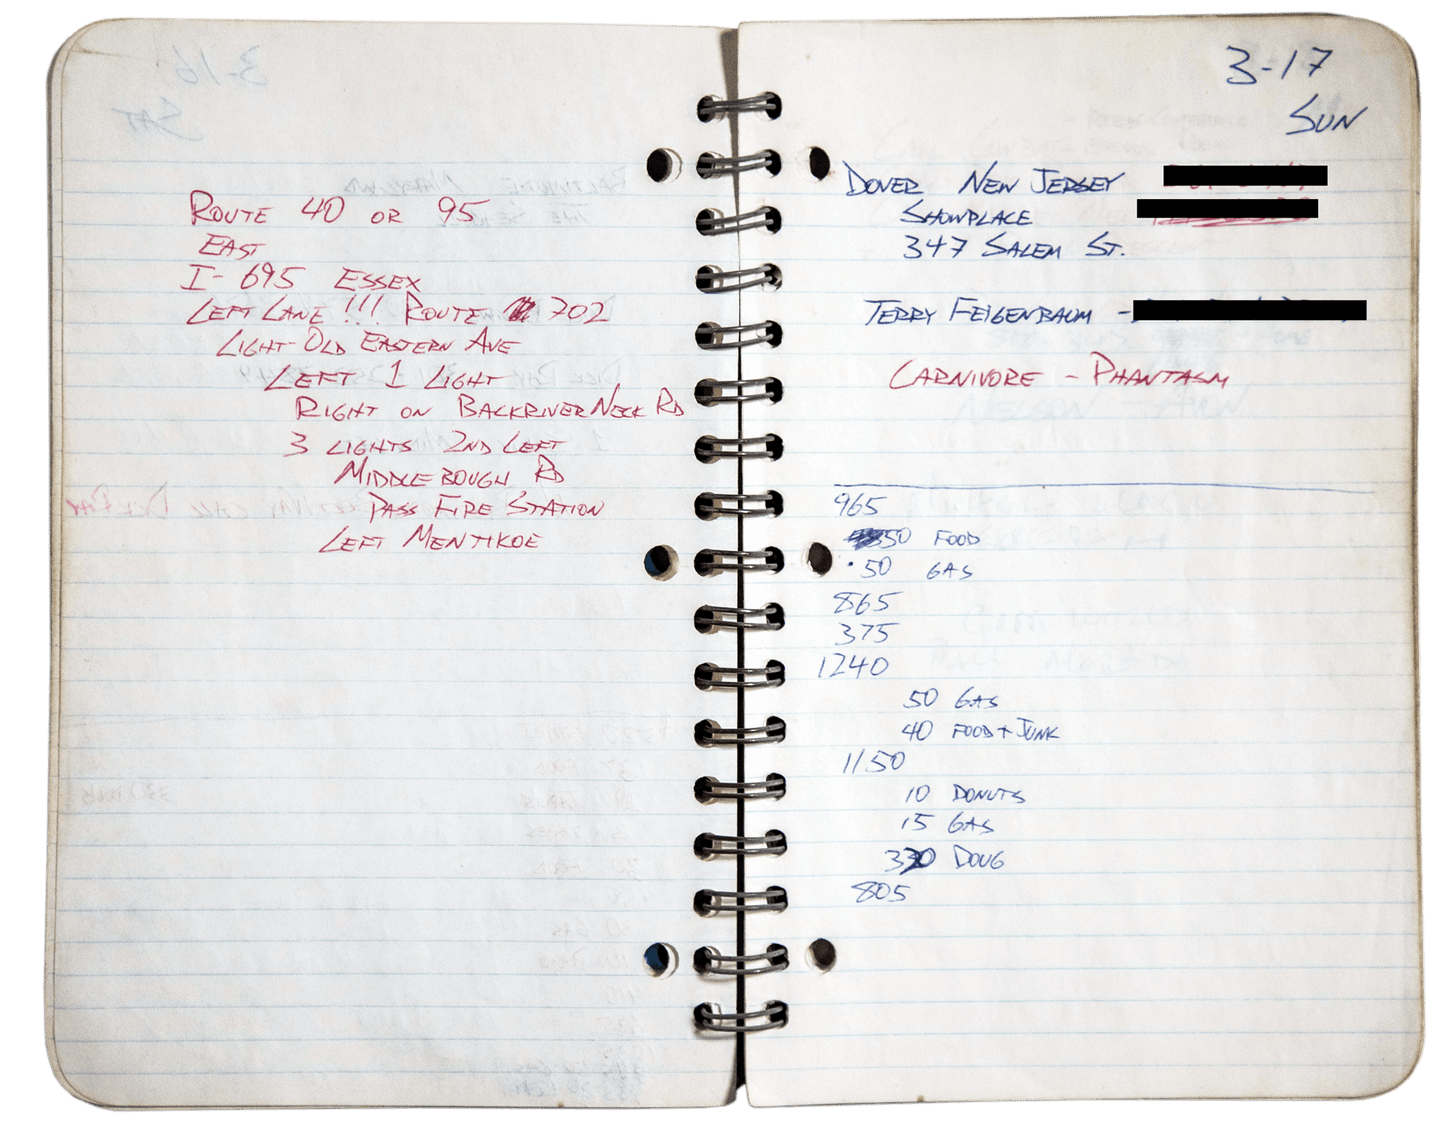 Route 40 or 95
East
I-695 Essex
Left Lane !!! Route 702
Light-Old Eastern Ave
Left 1 Light
Right on Backriver Neck Rd
3 Lights 2nd Left
Middlebough Rd
Pass Fire Station
Left Mentikoe
3-17
Sun
Dover New Jersey
Showplace
347 Salem St.
Terry Feigenbaum -
Carnivore - Phantasm
965
50 Food
50 Gas
865
375
1240
50 Gas
40 Food + Junk
1150
10 Donuts
15 Gas
330 Doug
805